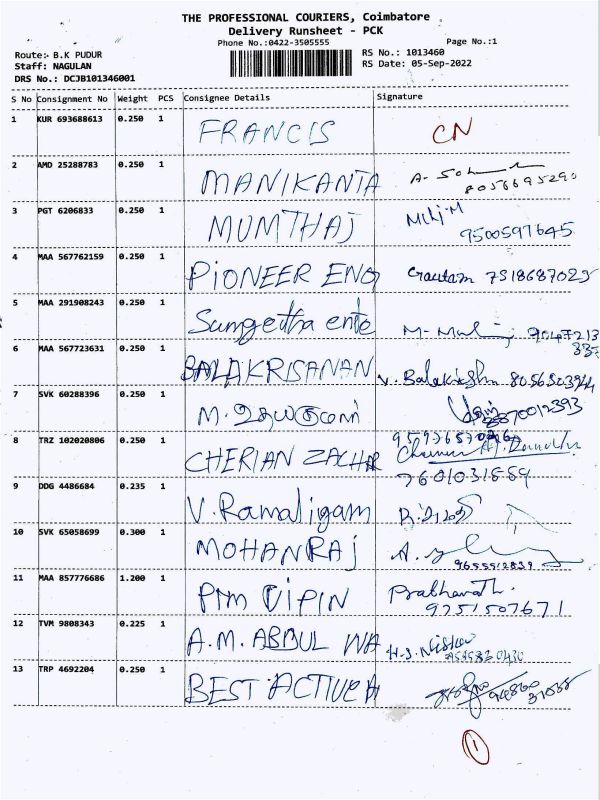 THE PROFESSIONAL COURIERS, Coimbatore
Delivery Runsheet - PCK
Phone No.:0422-3505555 Page No.:1
Route:- B.K PUDUR RS No.: 1013460
Staff: NAGULAN RS Date: 05-Sep-2022
DRS No.: DCJB101346001
S No Consignment No Weight PCS Consignee Details Signature
1 KUR 693688613 0.250 1 FRANCIS CN
2 AMD 25288783 0.250 1 MANIKANTA A-
8056695290
3 PGT 6206833 0.250 1 MUMTHAJ
9500597645
4 MAA 567762159 0.250 1 PIONEER ENG Gautam 7518687025
5 MAA 291908243 0.250 1 Sungetha ente M-
6 MAA 567723631 0.250 1 BALAKRISANAN V. Balakrishn
7 SVK 60288396 0.250 1 M. உதயகுமார்
8870012393
8 TRZ 102020806 0.250 1 CHERIAN ZACHAR
9 DDG 4486684 0.235 1 V. Ramaligam
10 SVK 65058699 0.300 1 MOHANRAJ A.
9655512839
11 MAA 857776686 1.200 1 PTM VIPIN Prabhavath.
9751507671
12 TVM 9808343 0.225 1 A.M. ABDUL WA
13 TRP 4692204 0.250 1 BEST ACTIVE A
1